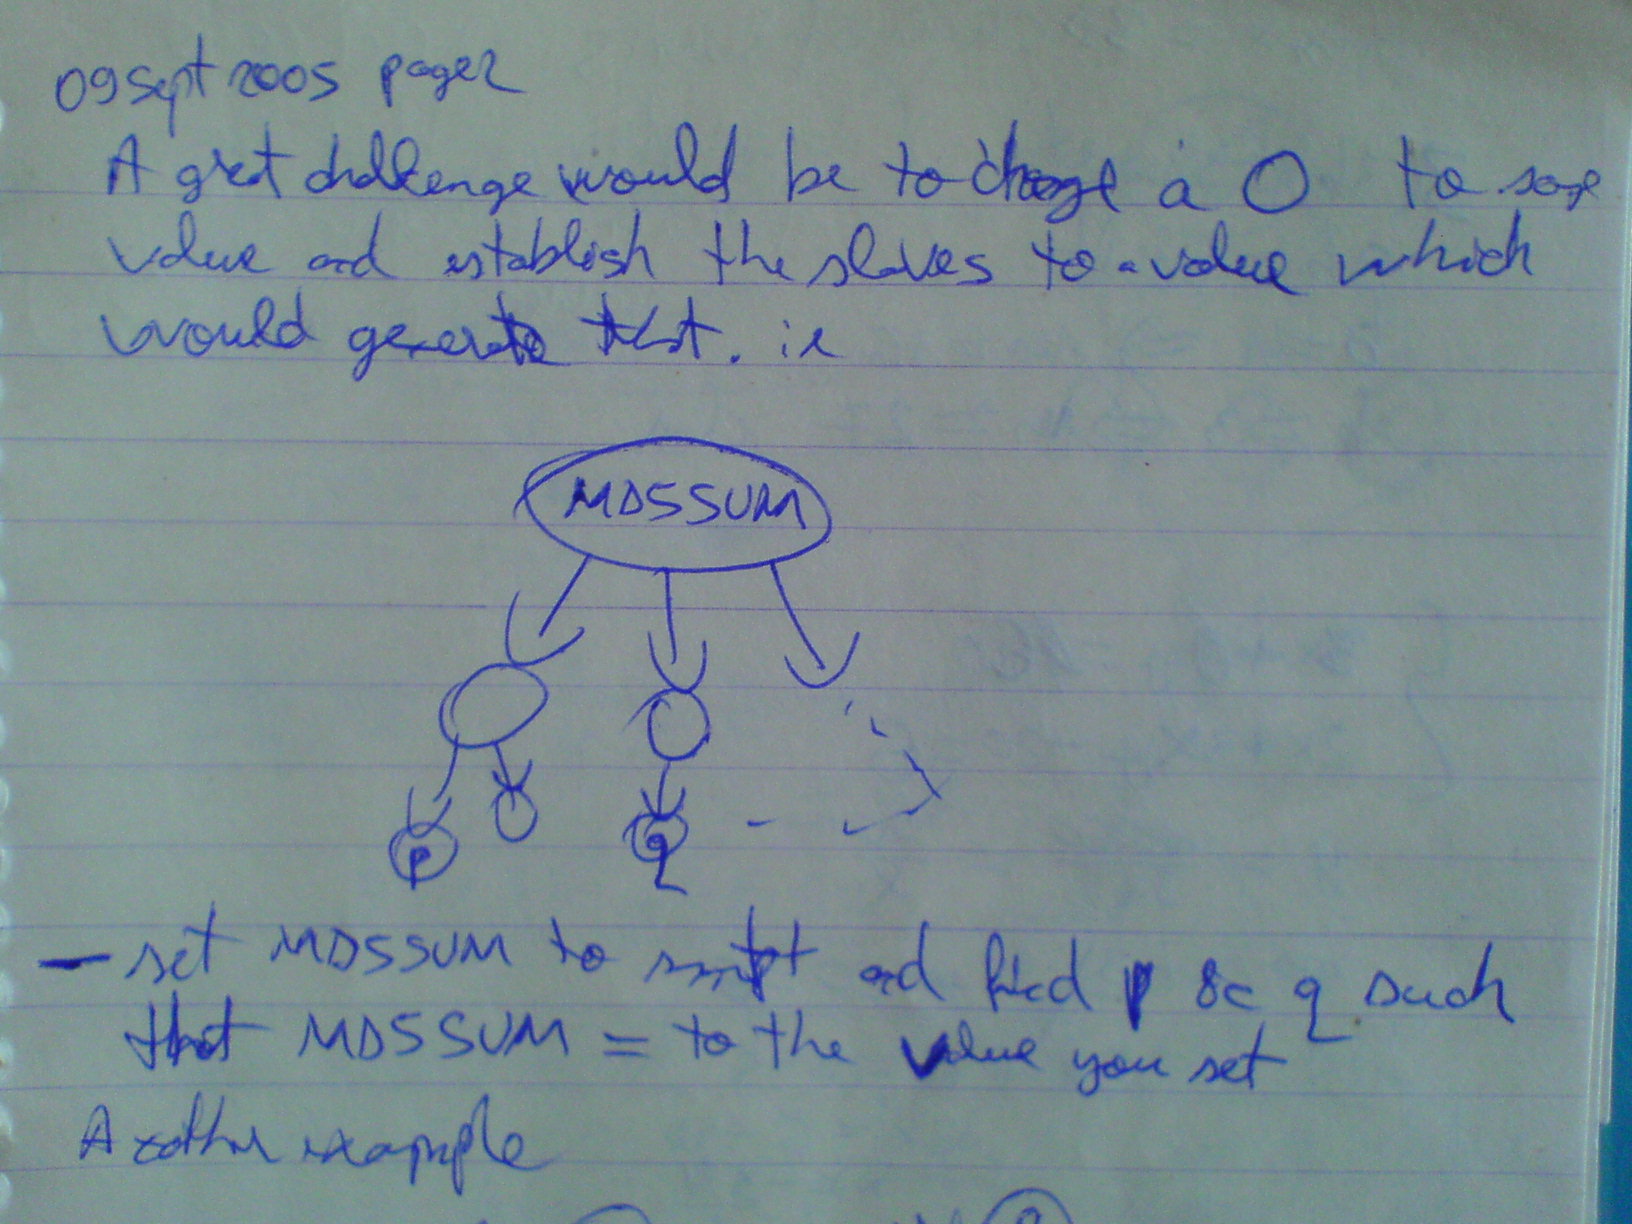 09 Sept 2005 page 2
A great challenge would be to change a O to some
value and establish the slaves to a value which
would generate that. ie
MDSSUM
p
q
- set MDSSUM to and find p & q such
that MDSSUM = to the value you set
Another example